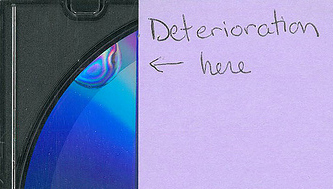 Deterioration
← here